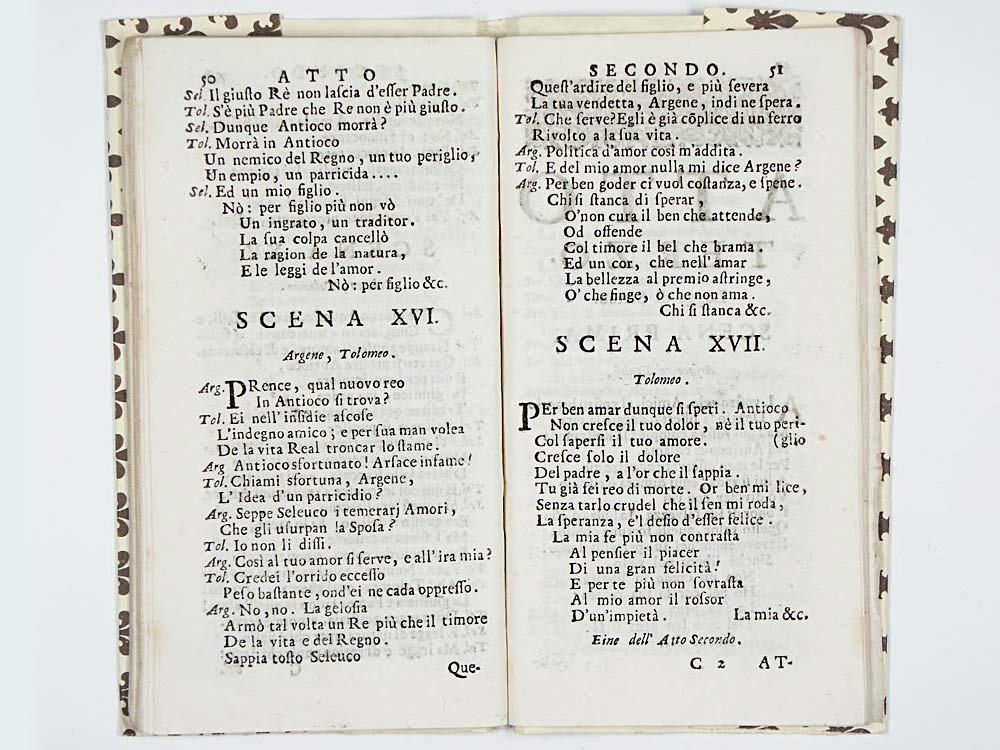 50 ATTO
Sel. Il giusto Rè non lascia d'esser Padre.
Tol. S'è più Padre che Re non è più giusto.
Sel. Dunque Antioco morrà?
Tol. Morrà in Antioco
Un nemico del Regno, un tuo periglio,
Un empio, un parricida....
Sel. Ed un mio figlio.
Nò: per figlio più non vò
Un ingrato, un traditor.
La sua colpa cancellò
La ragion de la natura,
E le leggi de l'amor.
Nò: per figlio &c.
SCENA XVI.
Argene, Tolomeo.
Arg. PRence, qual nuovo reo
In Antioco si trova?
Tol. Ei nell'insidie ascose
L'indegno amico; e per sua man volea
De la vita Real troncar lo stame.
Arg Antioco sfortunato! Arsace infame!
Tol. Chiami sfortuna, Argene,
L'Idea d'un parricidio?
Arg. Seppe Seleuco i temerarj Amori,
Che gli usurpan la Sposa?
Tol. Io non li dissi.
Arg. Così al tuo amor si serve, e all'ira mia?
Tol. Credei l'orrido eccesso
Peso bastante, ond'ei ne cada oppresso.
Arg. No, no. La gelosia
Armò tal volta un Re più che il timore
De la vita e del Regno.
Sappia tosto Seleuco
Que-
SECONDO. 51
Quest'ardire del figlio, e più severa
La tua vendetta, Argene, indi ne spera.
Tol. Che serve? Egli è già cõplice di un ferro
Rivolto a la sua vita.
Arg. Politica d'amor così m'addita.
Tol. E del mio amor nulla mi dice Argene?
Arg. Per ben goder ci vuol costanza, e spene.
Chi si stanca di sperar,
O'non cura il ben che attende,
Od offende
Col timore il bel che brama.
Ed un cor, che nell'amar
La bellezza al premio astringe,
O' che finge, ò che non ama.
Chi si stanca &c.
SCENA XVII.
Tolomeo.
PEr ben amar dunque si speri. Antioco
Non cresce il tuo dolor, nè il tuo peri-
Col sapersi il tuo amore. (glio
Cresce solo il dolore
Del padre, a l'or che il sappia.
Tu già sei reo di morte. Or ben mi lice,
Senza tarlo crudel che il sen mi roda,
La speranza, e'l desio d'esser felice.
La mia fe più non contrasta
Al pensier il piacer
Di una gran felicità!
E per te più non sovrasta
Al mio amor il rossor
D'un'impietà. La mia &c.
Eine dell' Atto Secondo.
C 2 AT-